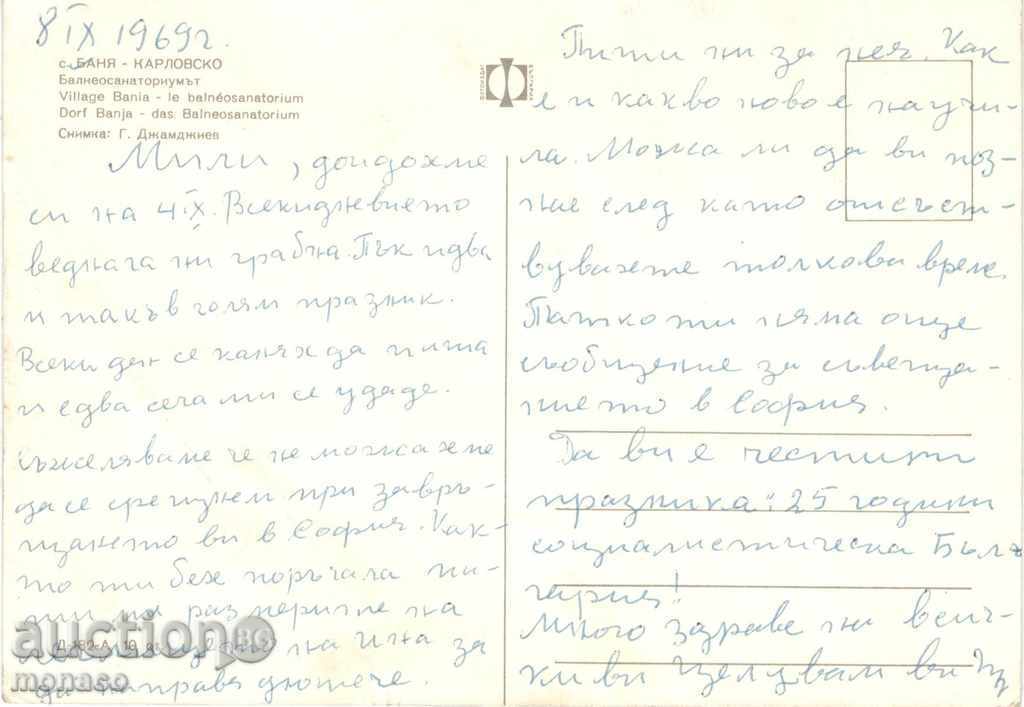 8 IX 1969 г.
с. БАНЯ - КАРЛОВСКО
Балнеосанаториумът
Village Bania - le balnéosanatorium
Dorf Banja - das Balneosanatorium
Снимка: Г. Джамджиев
Мили, дойдохме
си на 4 IX. Всекидневието
веднага ни грабна. Пък идва
и такъв голям празник.
Всеки ден се каняхда пиша
и едва сега ми се удаде.
Съжеляваме че не можахме
да се срещнем при завръ-
щането ви в София. Как-
то ти бех поръчала пи-
ши ми размерите на
на Ина за
да направя дюшече.
Д-182-А
ФОТОИЗДАТ
БЪЛГАРИЯ
Пиши ни за нея. Как
е и какво ново е научи-
ла. Можа ли да ви поз-
нае след като отсъст-
вувахте толкова време.
Патко ти няма още
съобщение за съвеща-
нието в София.
Да ви е честит
празника: 25 години
социалистическа Бълъ
гария!
Много здраве на всич-
ки ви Целувам ви
auction BG
monaso